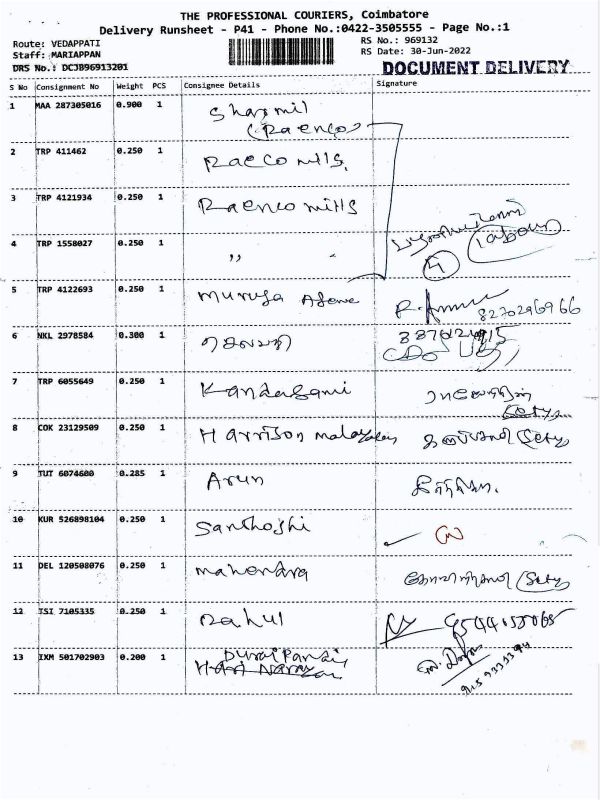 THE PROFESSIONAL COURIERS, Coimbatore
Delivery Runsheet - P41 - Phone No.:0422-3505555 - Page No.:1
Route: VEDAPPATI RS No.: 969132
Staff: MARIAPPAN RS Date: 30-Jun-2022
DRS No.: DCJB96913201 DOCUMENT DELIVERY
S No Consignment No Weight PCS Consignee Details Signature
1 MAA 287305016 0.900 1 Sharmil
(Raenco)
2 TRP 411462 0.250 1 Raeco mills.
3 TRP 4121934 0.250 1 Raenco mills
4 TRP 1558027 0.250 1 " " 4 labour
5 TRP 4122693 0.250 1 Muruga 8270296966
6 NKL 2978584 0.300 1 செல்வதி
7 TRP 6055649 0.250 1 Kandasami
8 COK 23129509 0.250 1 Harrison malayalam (Sety)
9 TUT 6074600 0.285 1 Arun
10 KUR 526898104 0.250 1 Santhoshi
11 DEL 120508076 0.250 1 Mahendra (Sety)
12 TSI 7105335 0.250 1 Rahul
13 IXM 501702903 0.200 1 Durai Pandi